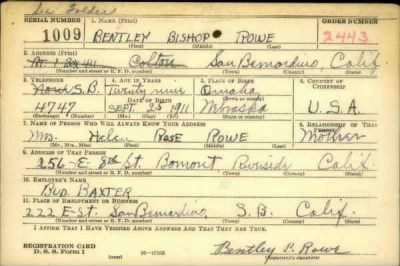 See Folder
SERIAL NUMBER 1. NAME (Print) ORDER NUMBER
1009 BENTLEY BISHOP ROWE 2443
(First) (Middle) (Last)
2. ADDRESS (Print)
Rt. 1 Bx 411 Colton San Bernardino, Calif.
(Number and street or R. F. D. number) (Town) (County) (State)
3. TELEPHONE 4. AGE IN YEARS 5. PLACE OF BIRTH 6. COUNTRY OF CITIZENSHIP
S.B. Twenty nine Omaha
DATE OF BIRTH (Town or county)
4747 Sept. 23 1911 U.S.A.
(Exchange) (Number) (Mo.) (Day) (Yr.) (State or country)
7. NAME OF PERSON WHO WILL ALWAYS KNOW YOUR ADDRESS 8. RELATIONSHIP OF THAT PERSON
Mrs. Helen Rose Rowe Mother
(Mr., Mrs., Miss) (First) (Middle) (Last)
9. ADDRESS OF THAT PERSON
256 E 8th St. Riverside Calif.
(Number and street or R. F. D. number) (Town) (County) (State)
10. EMPLOYER'S NAME
Bud. BAXTER
11. PLACE OF EMPLOYMENT OR BUSINESS
222 E-St. San Bernardino, S. B. Calif.
(Number and street or R. F. D. number) (Town) (County) (State)
I AFFIRM THAT I HAVE VERIFIED ABOVE ANSWERS AND THAT THEY ARE TRUE.
REGISTRATION CARD
D. S. S. Form 1 16-17105 Bentley B. Rowe
(Registrant's signature)